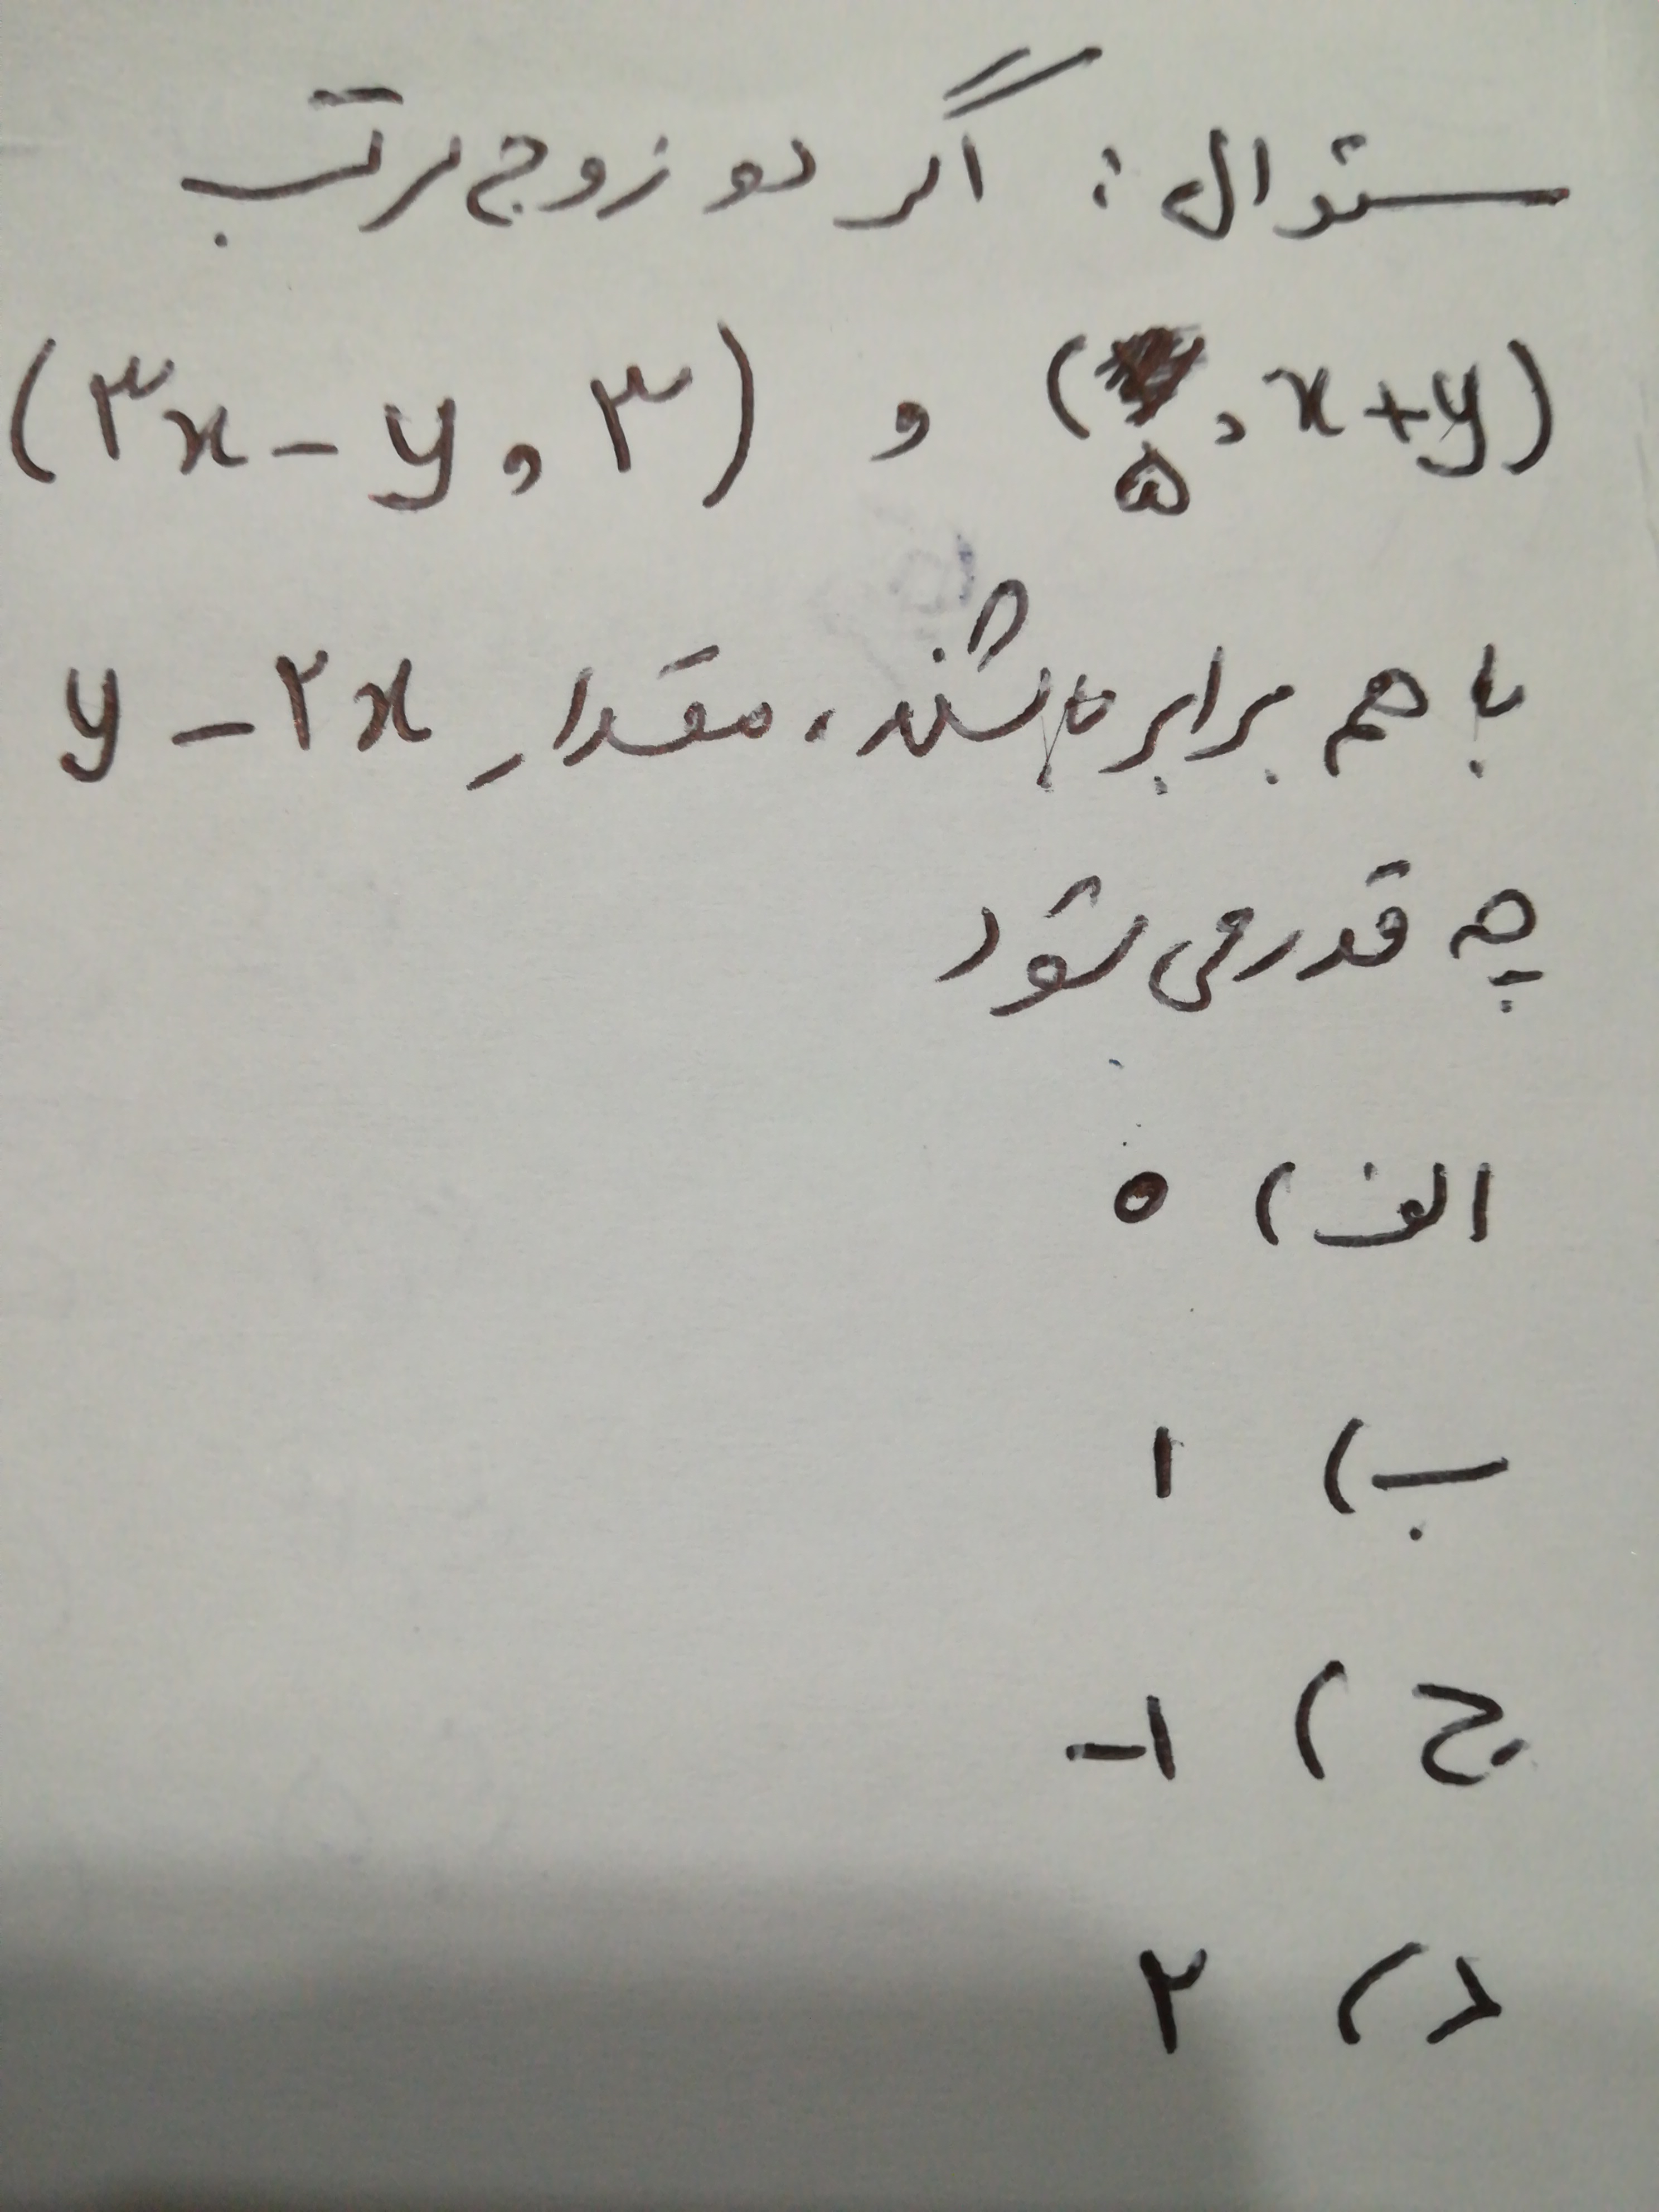 سئوال : اگر دو زوج مرتب
(۳x - y , ۳) و (۵ , x + y)
با هم برابر باشند، مقدار y - ۲x
چه قدر می شود
الف) ۰
ب) ۱
ج) -۱
د) ۲